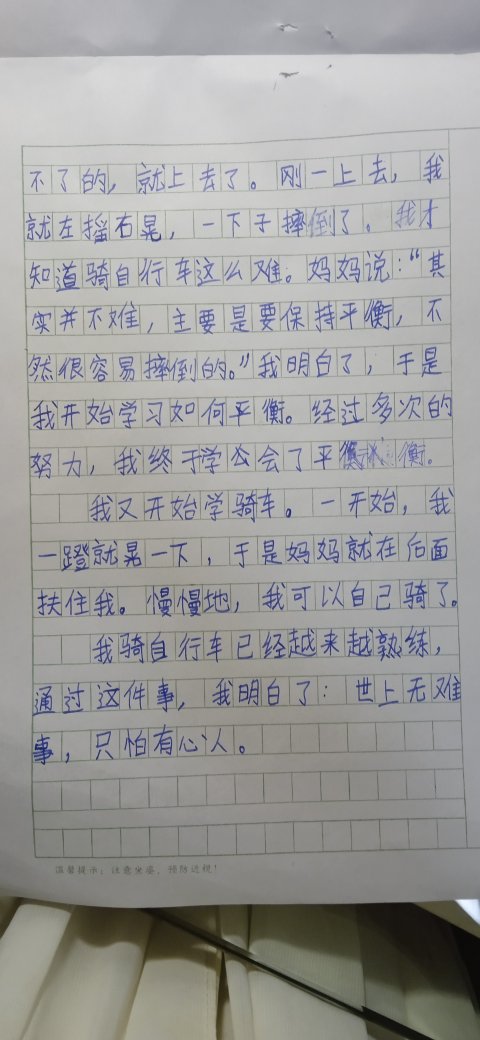 不了的，就上去了。刚一上去，我
就左摇右晃，一下子摔倒了。我才
知道骑自行车这么难。妈妈说：“其
实并不难，主要是要保持平衡，不
然很容易摔倒的。”我明白了，于是
我开始学习如何平衡。经过多次的
努力，我终于学会了平衡。
我又开始学骑车。一开始，我
一蹬就晃一下，于是妈妈就在后面
扶住我。慢慢地，我可以自己骑了。
我骑自行车已经越来越熟练，
通过这件事，我明白了：世上无难
事，只怕有心人。
温馨提示：注意坐姿，预防近视！